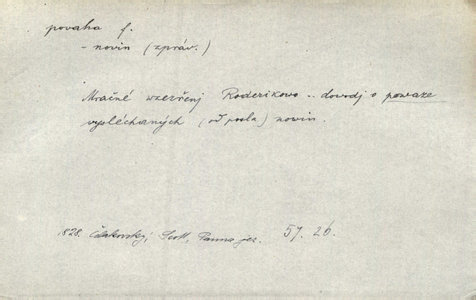 povaha f.
- novin (zpráv.)
Mračné wzezřenj Roderikowo .. dowodj o powaze
vysléchaných (od posla) nowin.
1828. Čelakovský, Scott, Panna jez. 57. 26.